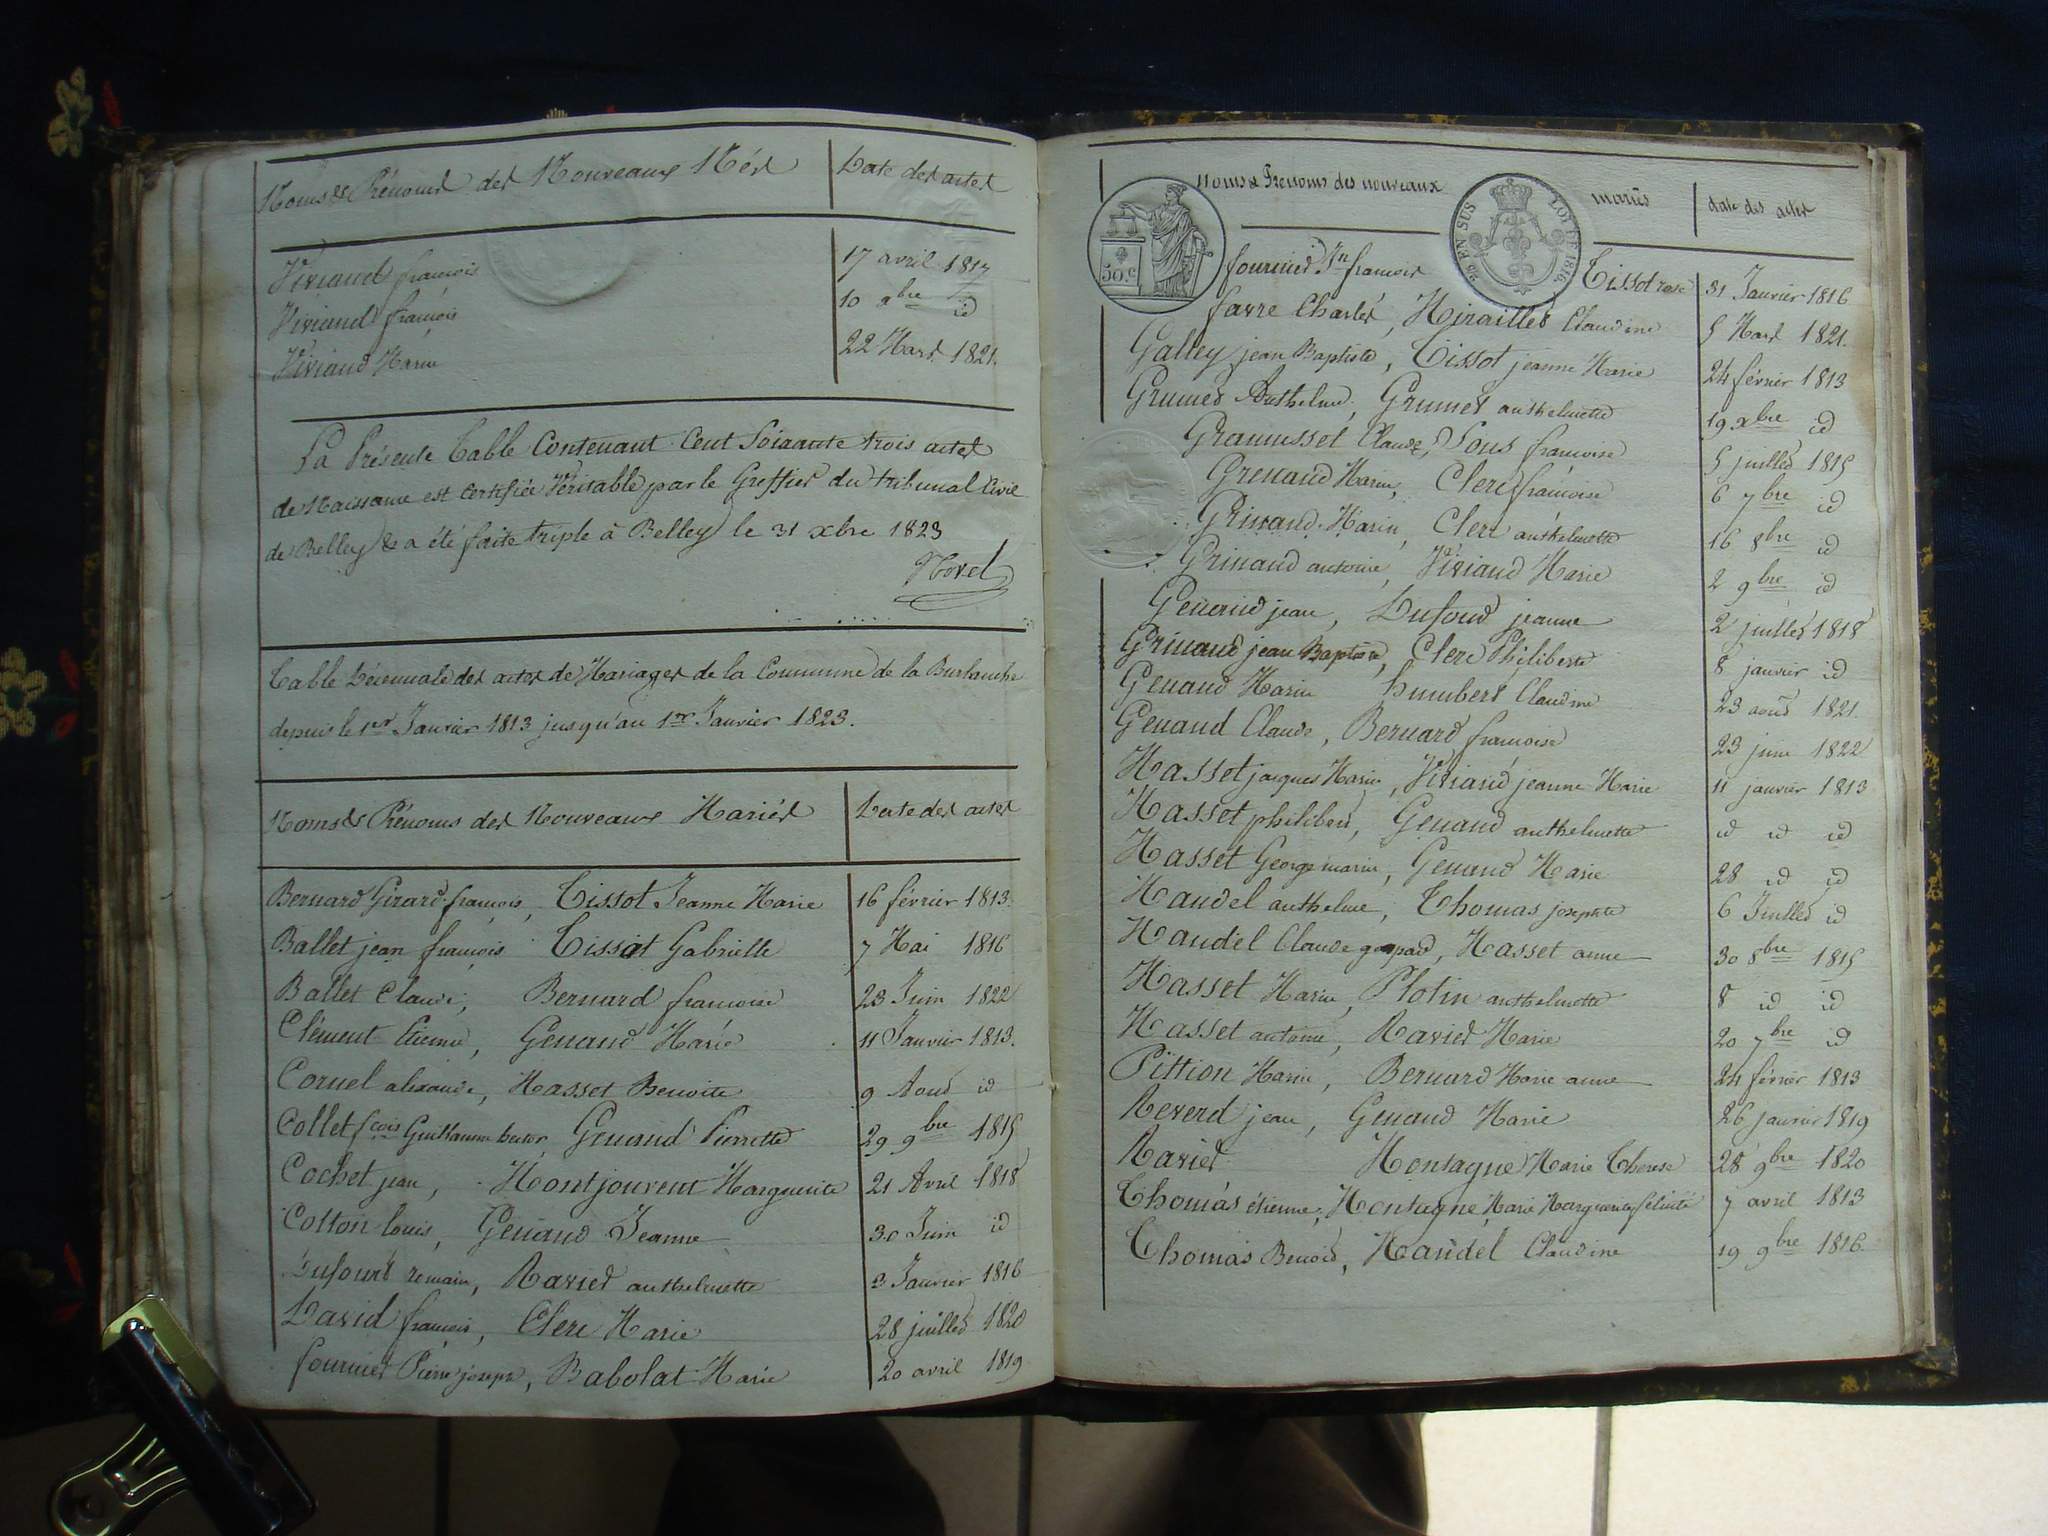 Noms & Prénoms des Nouveaux Nés Date des actes
Viviand françois 17 avril 1817
Viviand françois 10 xbre id
Viviand Marie 22 Mars 1821.
La Présente Table Contenant Cent Soixante trois actes
de Naissance est certifiée Véritable par le Greffier du tribunal Civil
de Belley & a été faite triple à Belley le 31 xbre 1823
Table Décennale des actes de Mariages de la Commune de la Burbanche
depuis le 1er Janvier 1813 jusqu'au 1er Janvier 1823.
Noms & Prénoms des Nouveaux Mariés Date des actes
Bernard Girard françois, Tissot Jeanne Marie 16 février 1813.
Ballet jean françois Tissot Gabrielle 7 Mai 1816
Ballet Claude, Bernard françoise 23 Juin 1822
Clément Etienne, Genaud Marie 11 Janvier 1813.
Cornel alexandre, Masset Benoite 9 Aout id
Collet fçois Guillaume hector, Genaud Pierrette 29 9bre 1815
Cochet jean, Montjouvent Marguerite 21 Avril 1818
Cotton louis, Genaud Jeanne 30 Juin id
Dufour romain, Ravier anthelmette 3 Janvier 1816
David françois, Clerc Marie 28 juillet 1820
fournier Pierre joseph, Babolat Marie 20 avril 1819
Noms & Prenoms des nouveaux mariés date des actes
50.c
25 EN SUS LOI DE 1816
fournier Jn françois Tissot rose 31 Janvier 1816
favre Charles, Miraillet Claudine 5 Mars 1821.
Galley jean Baptiste, Tissot jeanne Marie 24 février 1813
Grumet Anthelme, Grumet anthelmette 19 xbre id
Granusset Claude, Pous françoise 5 juillet 1815
Grenaud Marin, Clerc françoise 6 7bre id
Grinand Marin, Clerc anthelmette 16 8bre id
Grinand antoine, Viviand Marie 2 9bre id
Genand jean, Dufour jeanne 2 juillet 1818
Grinand jean Baptiste, Clerc Philiberte 8 janvier id
Genaud Marin humbert Claudine 23 aout 1821.
Genaud Claude, Bernard françoise 23 juin 1822
Masset jacques Marin, Viviand jeanne Marie 11 janvier 1813
Masset philibert, Genaud anthelmette id id id
Masset George marin, Genaud Marie 28 id id
Mandel anthelme, Thomas josephte 6 Juillet id
Mandel Claude gaspard, Masset anne 30 8bre 1815
Masset Marin, Plotin anthelmette 8 id id
Masset antoine, Ravier Marie 20 7bre id
Pittion Marin, Bernard Marie anne 24 février 1813
Reverd jean, Genaud Marie 26 janvier 1819
Ravier Montagne Marie Therese 28 9bre 1820
Thomas étienne, Montagne Marie Marguerite félicité 7 avril 1813
Thomas Benoit, Mandel Claudine 19 9bre 1816.